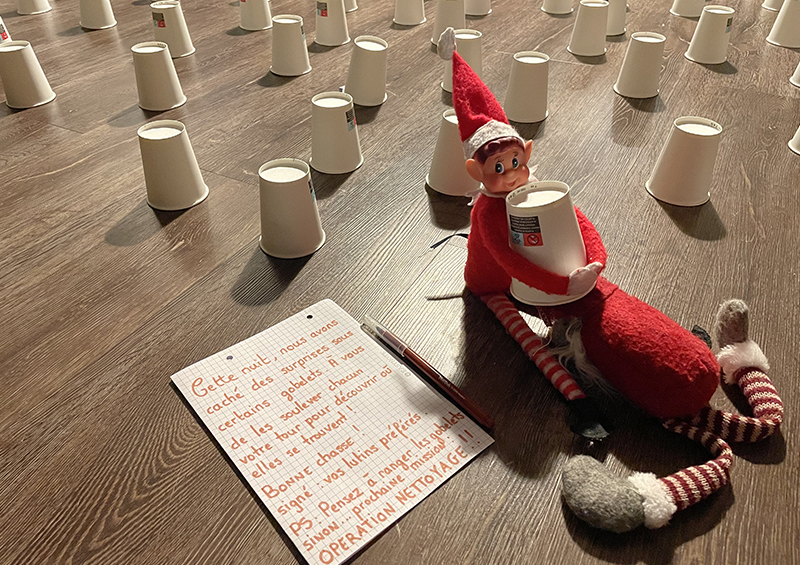 Cette nuit, nous avons
caché des surprises sous
certains gobelets. À vous
de les soulever chacun
votre tour pour découvrir où
elles se trouvent !
BONNE chasse !
signé : vos lutins préférés.
PS : Pensez à ranger les gobelets
sinon... prochaine mission :
OPERATION NETTOYAGE !!